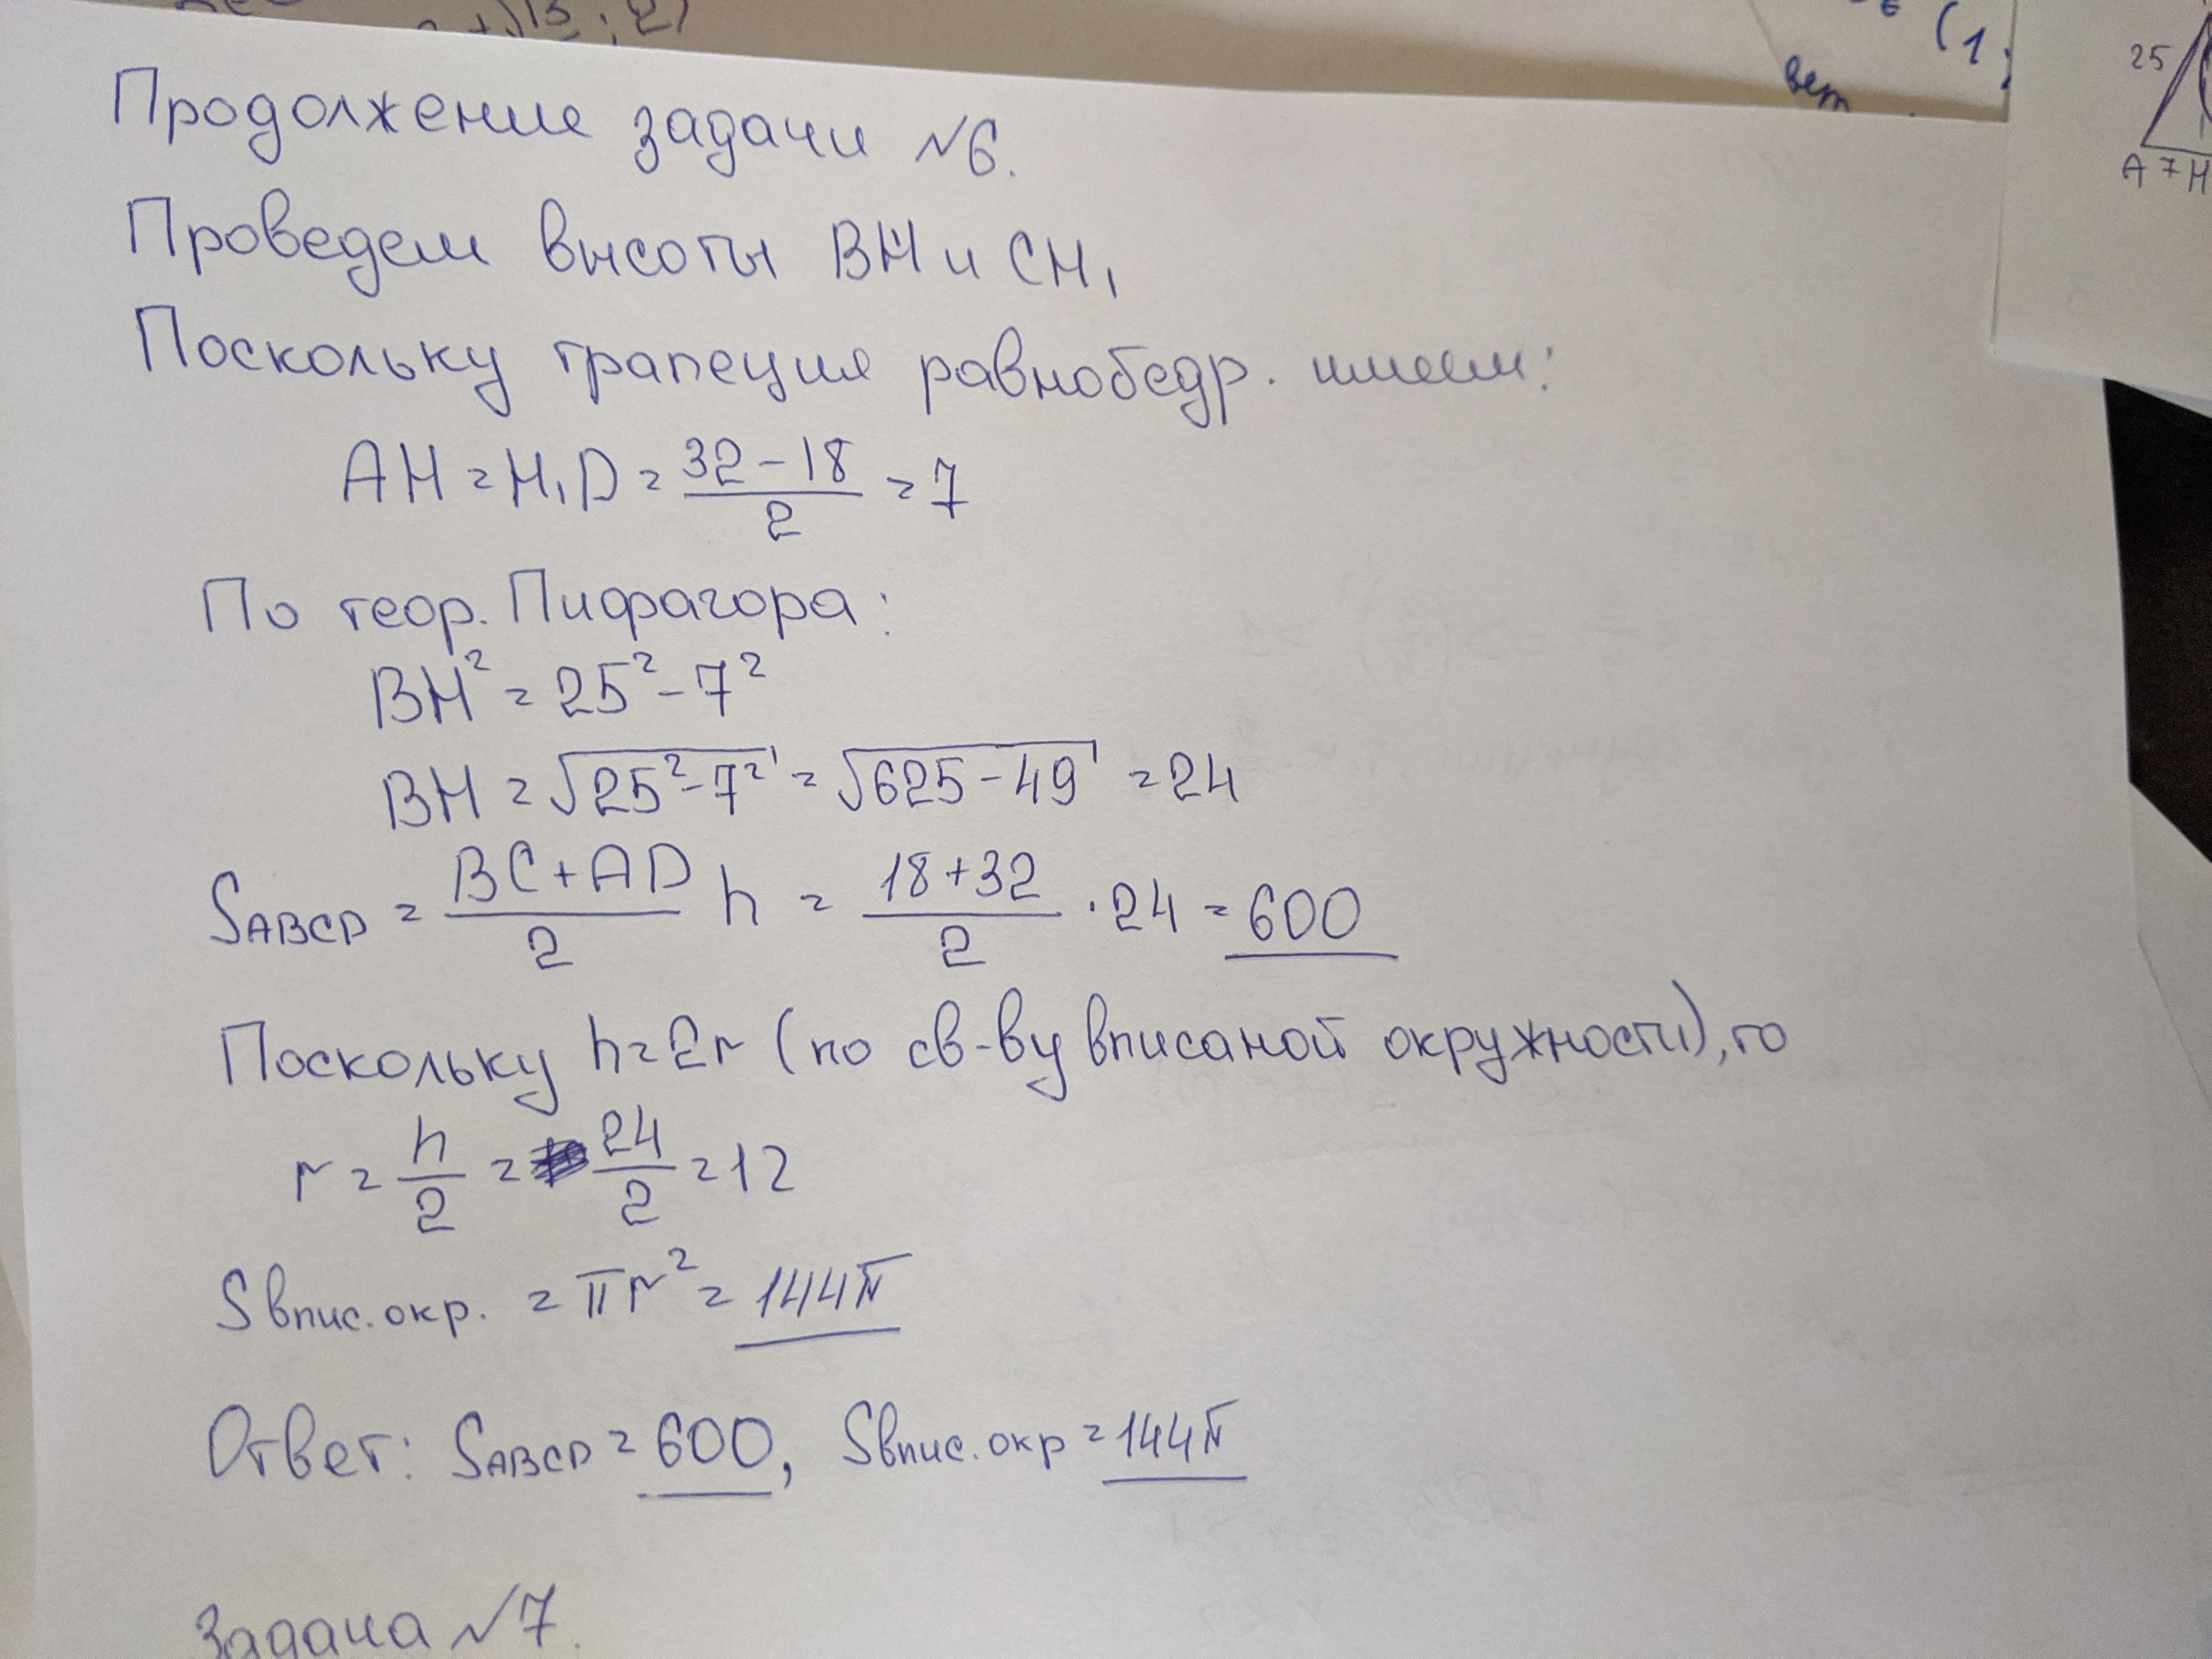 +)15 ; 2)
(1;
вет
25
A 7 H
Продолжение задачи №6.
Проведем высоты BH и CH₁
Поскольку трапеция равнобедр. имеем:
AH = H₁D = (32 - 18)/2 = 7
По теор. Пифагора:
BH² = 25² - 7²
BH = √(25² - 7²) = √(625 - 49) = 24
S_ABCD = (BC + AD)/2 h = (18 + 32)/2 · 24 = 600
Поскольку h = 2r (по св-ву вписаной окружности), то
r = h/2 = 24/2 = 12
S впис. окр. = πr² = 144π
Ответ: S_ABCD = 600, S впис. окр = 144π
Задача №7.